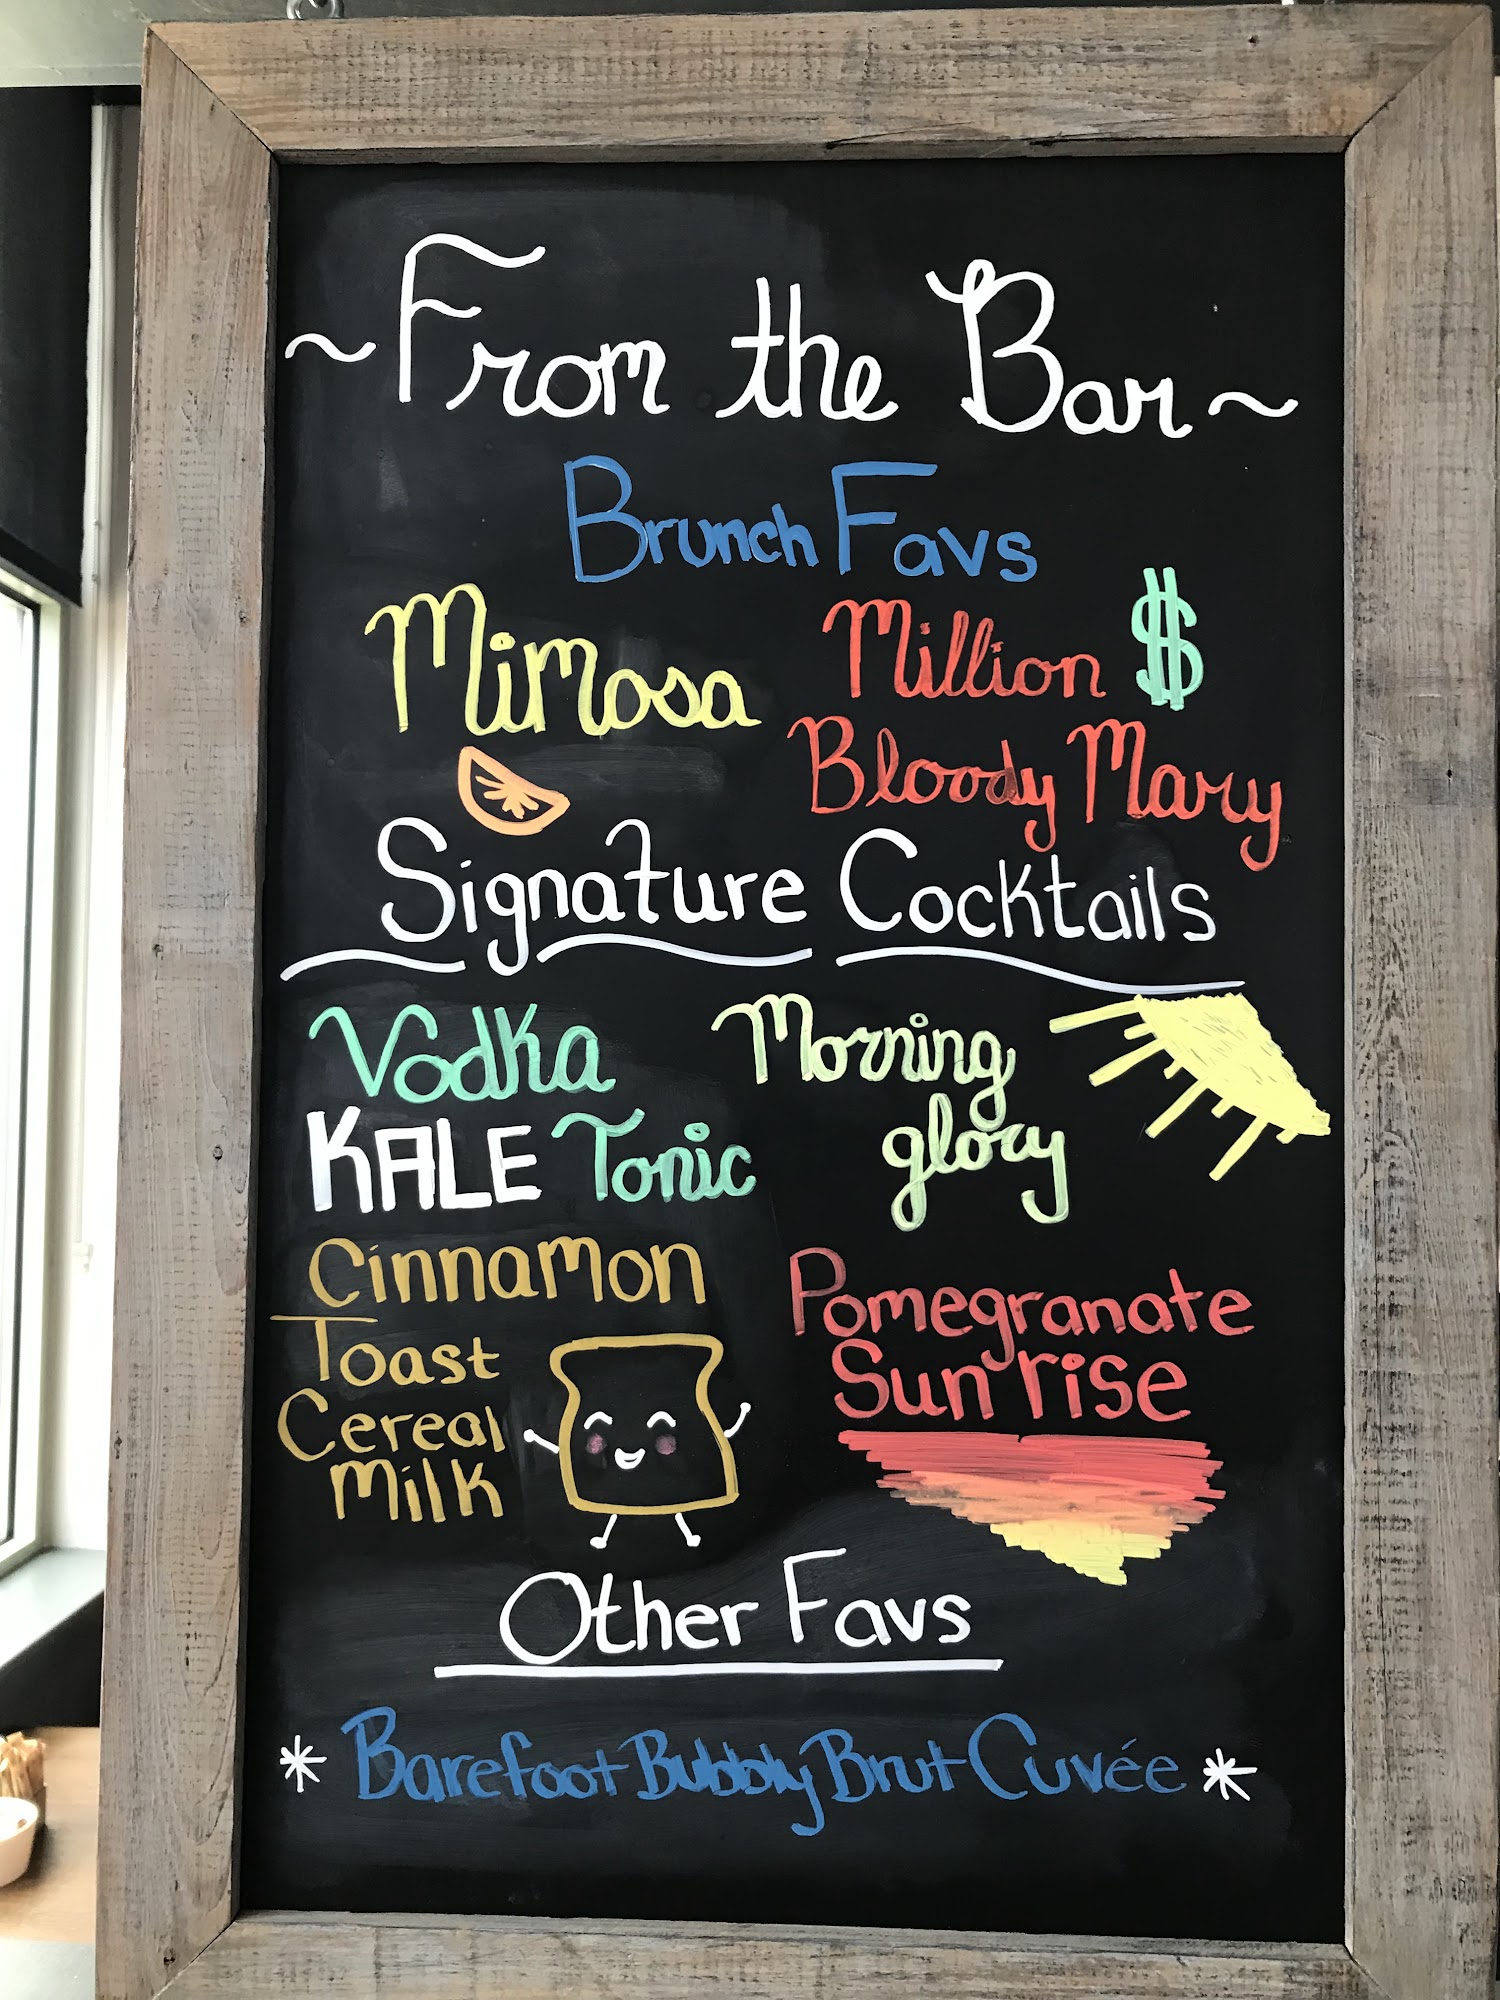 ~From the Bar~
Brunch Favs
Mimosa
Million $
Bloody Mary
Signature Cocktails
Vodka
KALE Tonic
Morning
glory
Cinnamon
Toast
Cereal
Milk
Pomegranate
Sunrise
Other Favs
* Barefoot Bubbly Brut Cuvée *